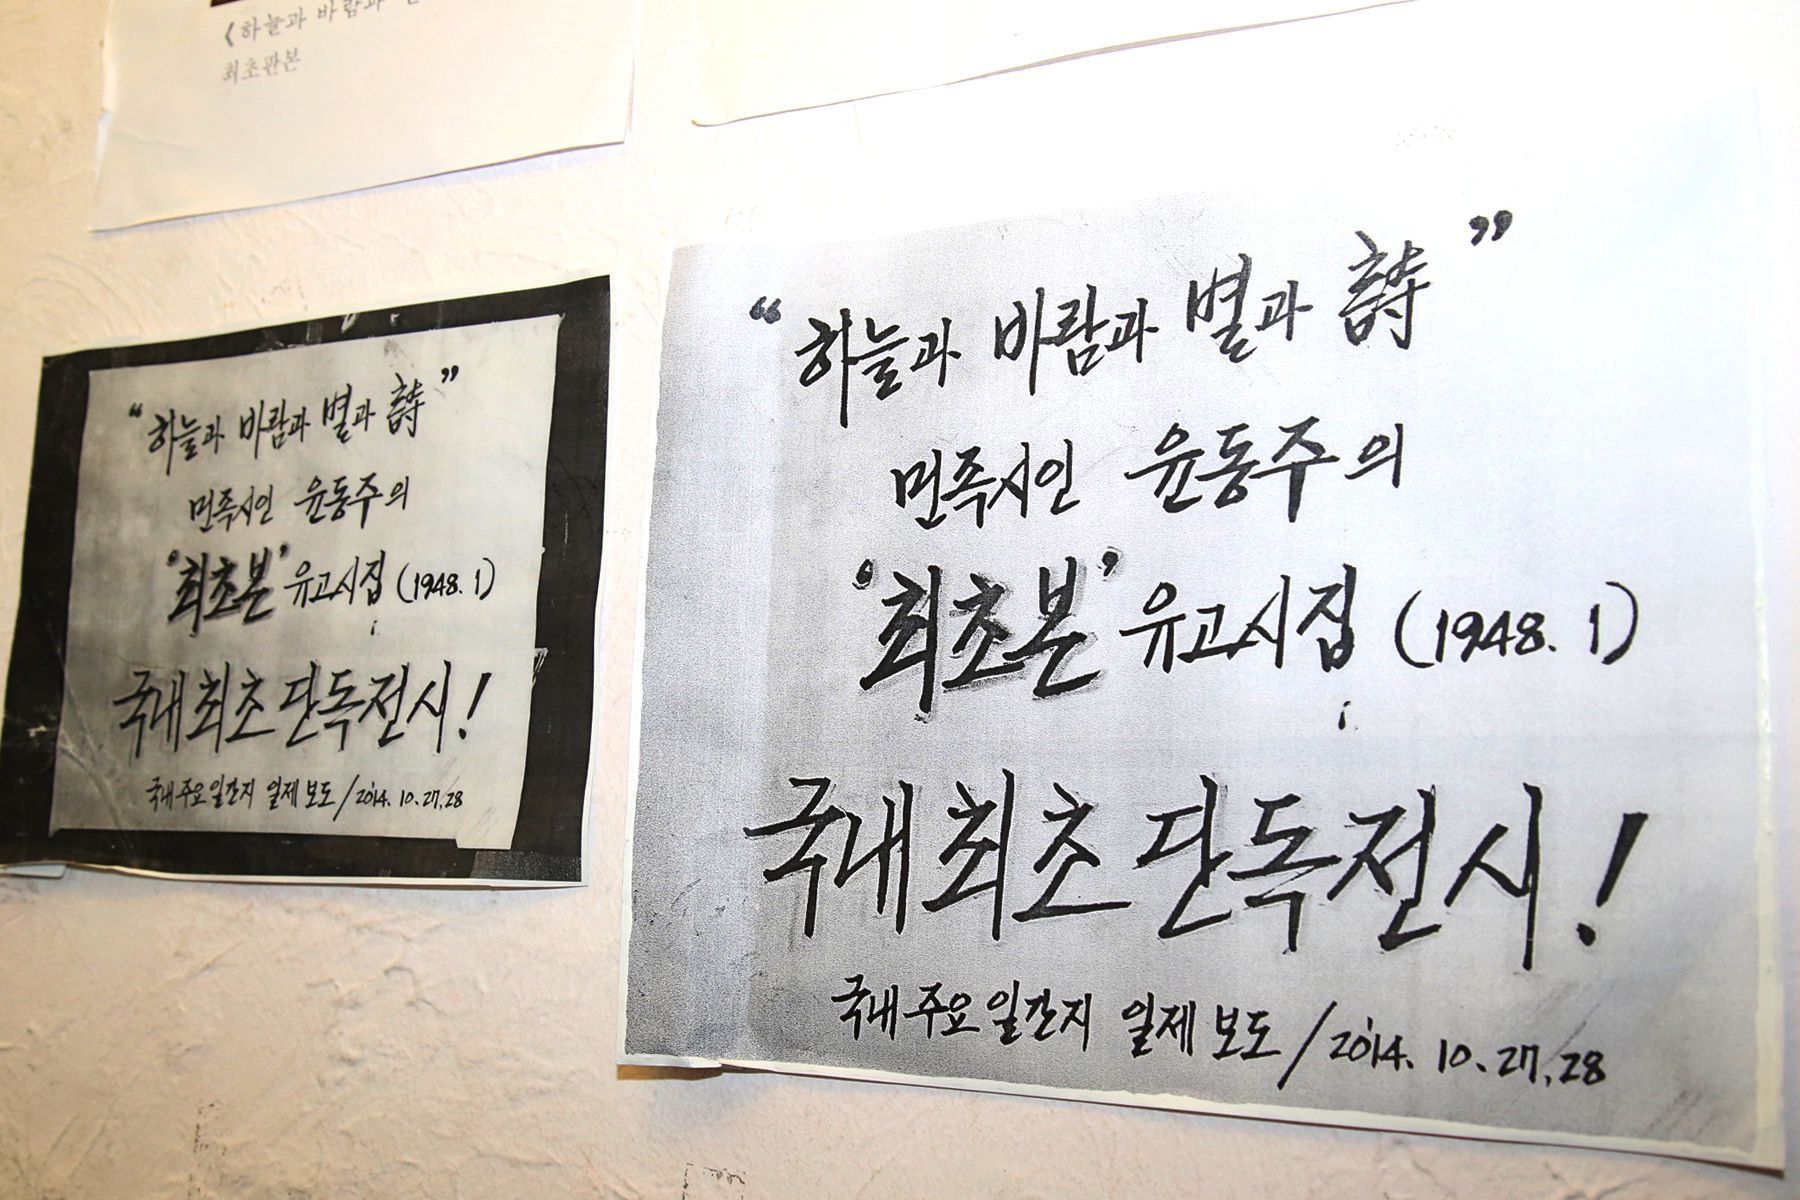 《하늘과 바람과
최초판본
“하늘과 바람과 별과 詩”
민족시인 윤동주의
‘최초본’ 유고시집 (1948. 1)
국내최초단독전시!
국내 주요 일간지 일제 보도 / 2014. 10. 27, 28
“하늘과 바람과 별과 詩”
민족시인 윤동주의
‘최초본’ 유고시집 (1948. 1)
국내최초단독전시!
국내 주요 일간지 일제 보도 / 2014. 10. 27, 28